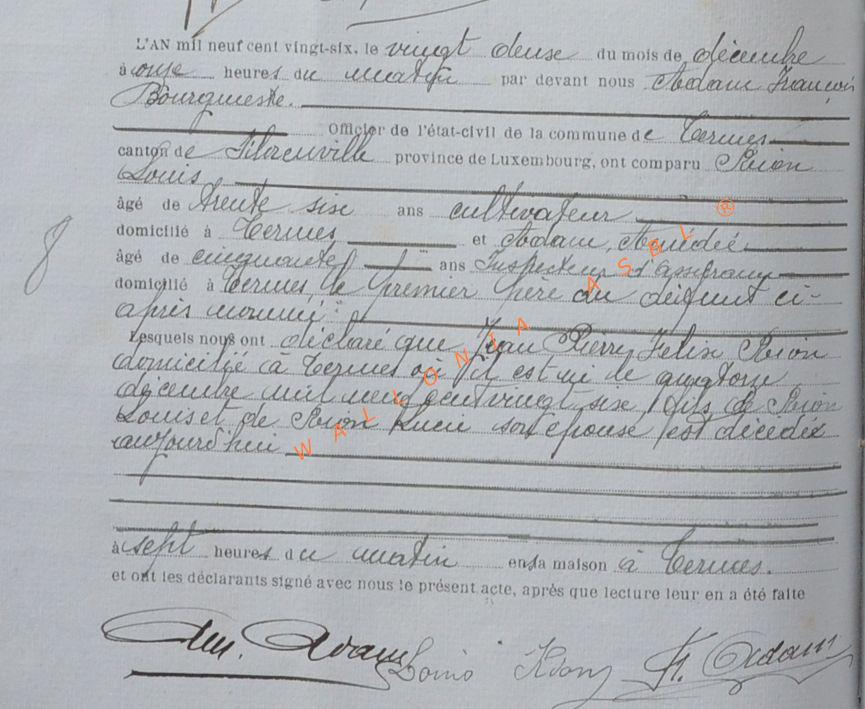 L'AN mil neuf cent vingt-six, le vingt deuse du mois de décembre
à onze heures du matin par devant nous Adam François
Bourgmestre.
Officier de l'état-civil de la commune de Termes
canton de province de Luxembourg, ont comparu
Louis,
âgé de trente six ans cultivateur
domicilié à Termes et Adam, Amédée
âgé de cinquante ans Inspecteur d'assurance
domicilié à Termes, le premier père du défunt ci-
après nommé :
Lesquels nous ont déclaré que Jean Pierre Felix
domicilié à Termes où il est né le quatorze
décembre mil neuf cent vingt six, fils de
Louis et de Lucie son épouse est décédé
aujourd'hui
à sept heures du matin en sa maison à Termes.
et ont les déclarants signé avec nous le présent acte, après que lecture leur en a été faite
Am. Adam Louis F. Adam
8
WALLONIA ASBL ®